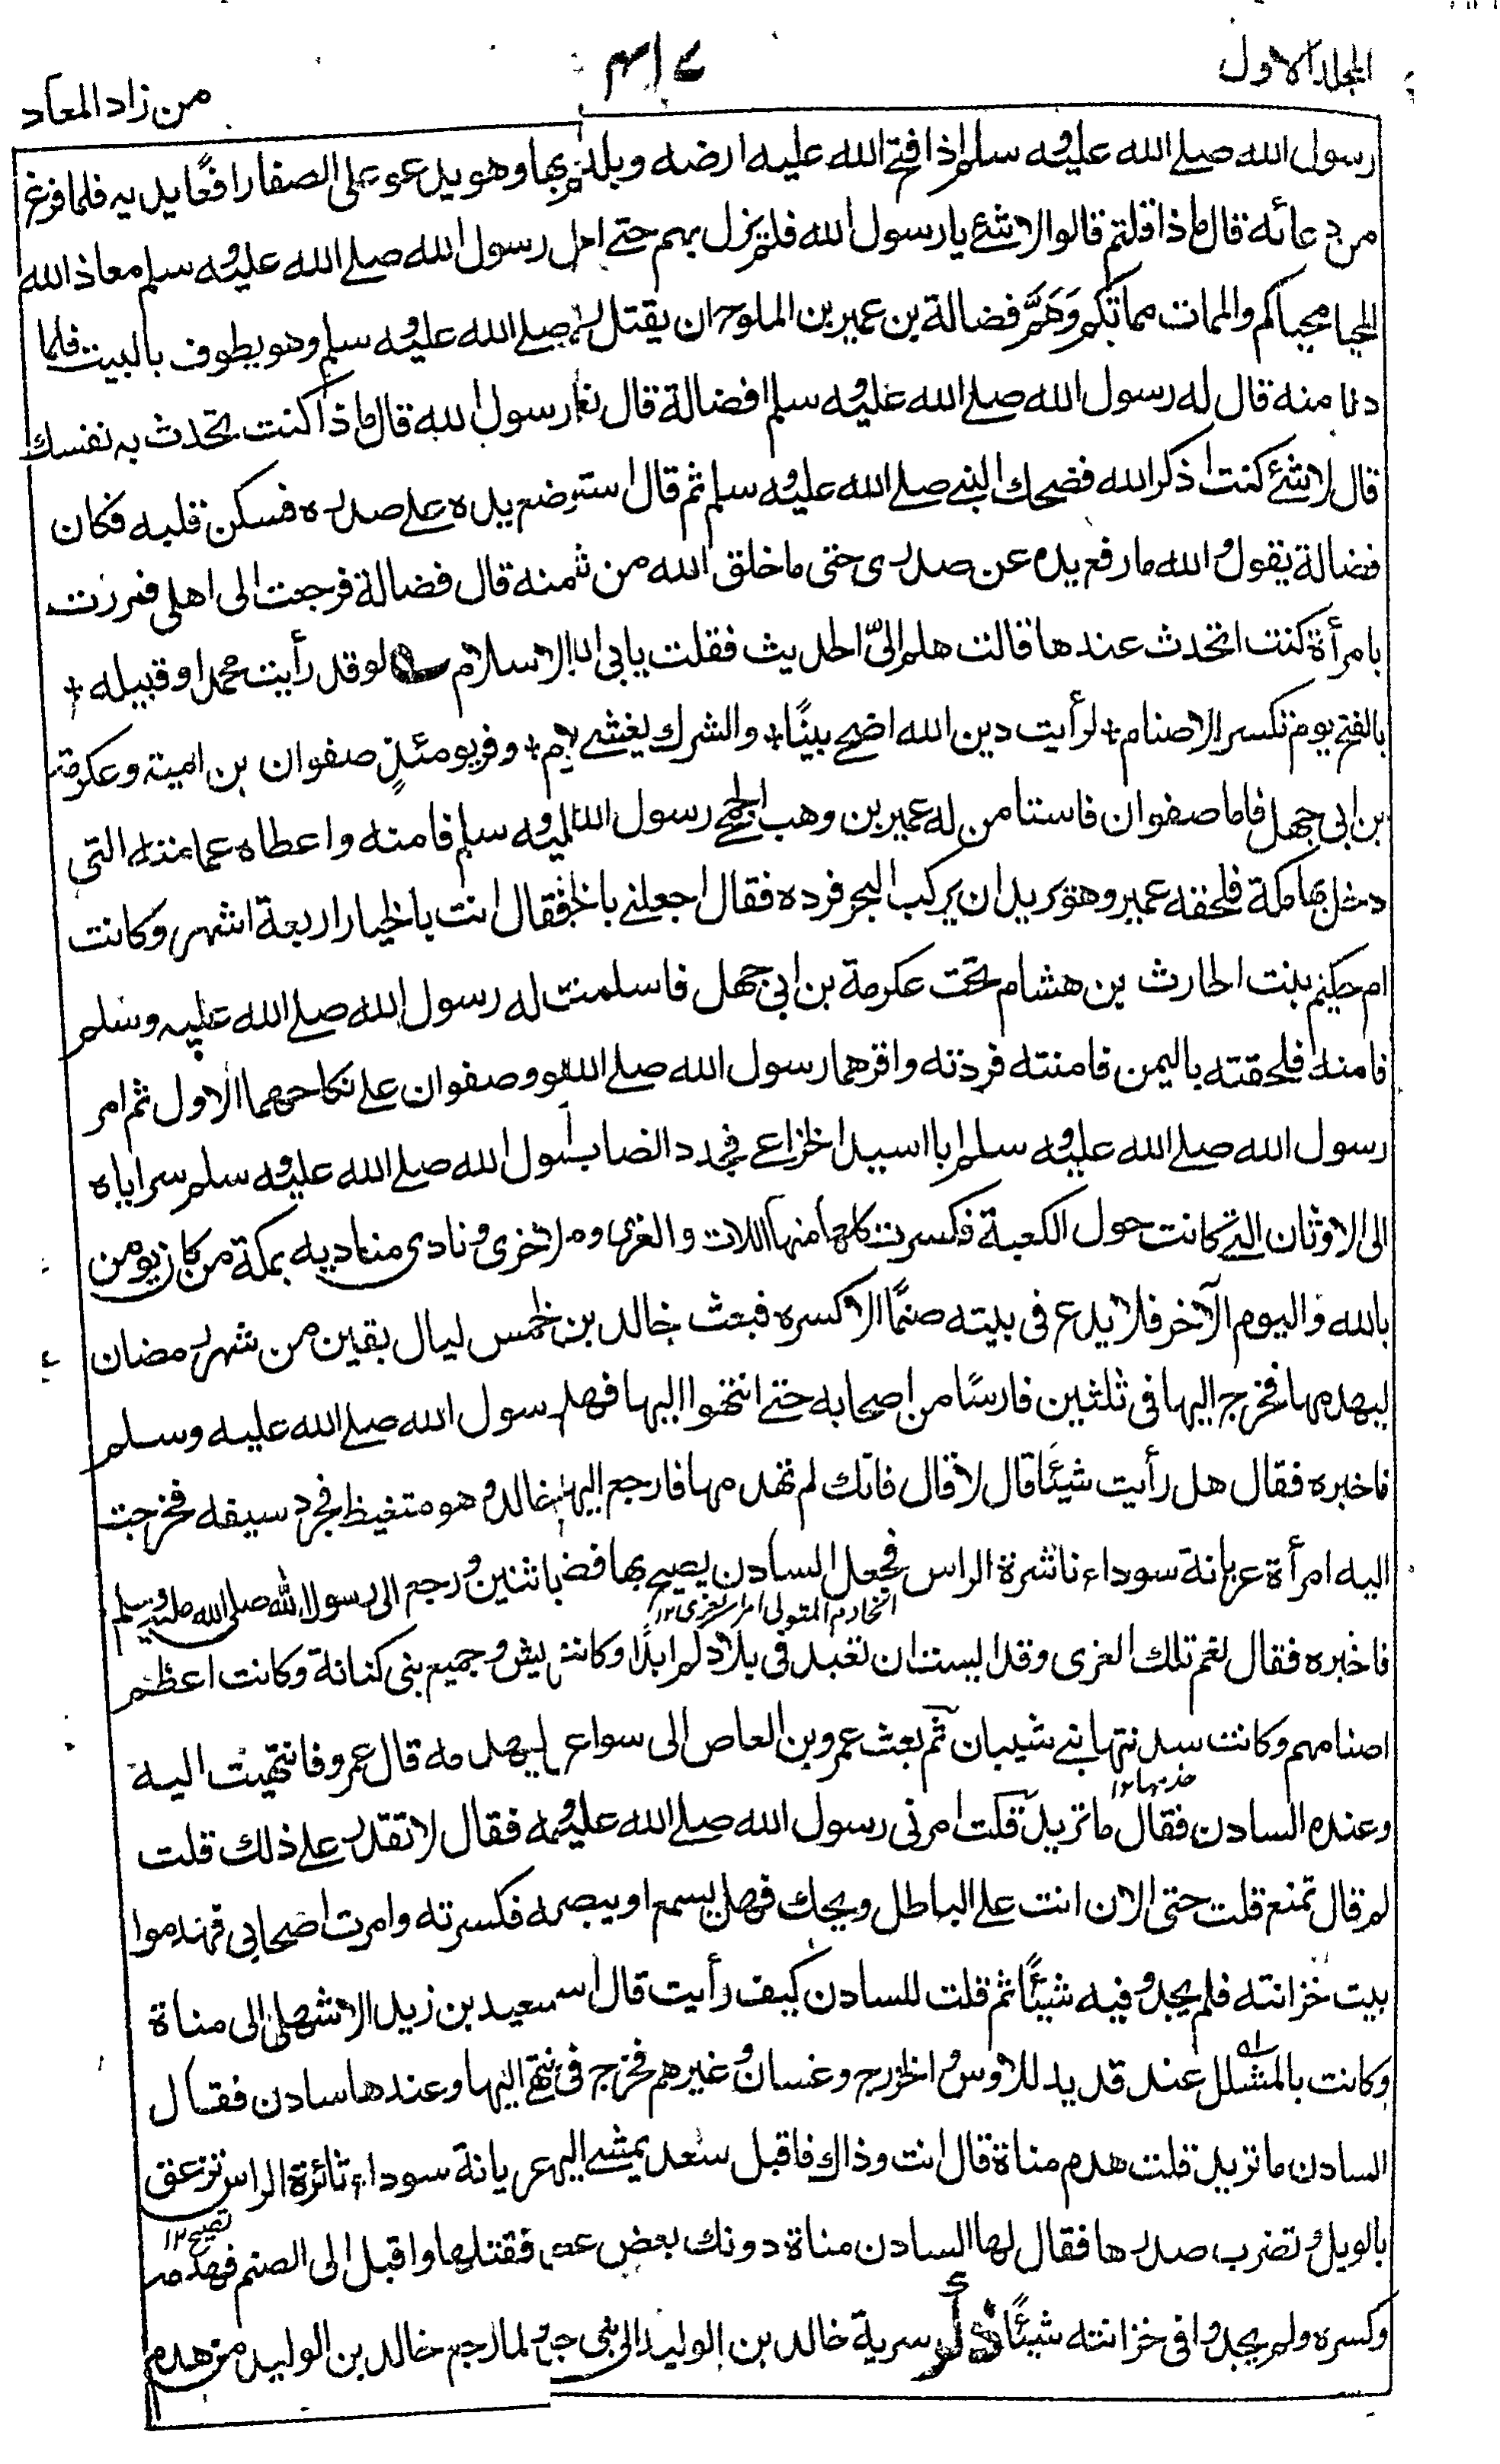 المجلد الاول
٤١٧
من زاد المعاد
رسول الله صلے الله عليه وسلم اذا فتح الله عليه ارضه وبلده ان يقيم بها وهو يدعو على الصفا رافعًا يديه فلما فرغ
من دعائه قال ماذا قلتم قالوا لا شئ يا رسول الله فلم يزل بهم حتے رسول الله صلے الله عليه وسلم معاذ الله
المحيا محياكم والممات مماتكم وَهَمَّ فضالة بن عمير بن الملوح ان يقتل رسول الله صلے الله عليه وسلم وهو يطوف بالبيت فلما
دنا منه قال له رسول الله صلے الله عليه وسلم افضالة قال نعم يا رسول الله قال ماذا كنت تحدث به نفسك
قال لا شئ كنت اذكر الله فضحك النبے صلے الله عليه وسلم ثم قال وضع يده علے صدره فسكن قلبه فكان
فضالة يقول والله ما رفع يده عن صدرى حتى ما خلق الله من شئ منه قال فضالة فرجعت الى اهلى فمررت
بامرأة كنت اتحدث عندها قالت هلم الىّ الحديث فقلت يابى الاسلام لو قد رأيت محمدا وقبيله +
بالفتح يوم تكسر الاصنام + لرأيت دين الله اضحے بينًا + والشرك يغشے + وفر يومئذٍ صفوان بن امية وعكرمة
بن ابى جهل فاما صفوان فاستامن له عمير بن وهب الجمحے رسول الله عليه وسلم فامنه واعطاه عمامته التى
دخل بها مكة فلحقه عمير وهو يريد ان يركب البحر فرده فقال اجعلنے بالخيار فقال انت بالخيار اربعة اشهر وكانت
ام حكيم بنت الحارث بن هشام تحت عكرمة بن ابى جهل فاسلمت له رسول الله صلے الله عليه وسلم
فامنه فلحقته باليمن فامنته فردته واقرهما رسول الله صلے الله وصفوان علے نكاحهما الاول ثم امر
رسول الله صلے الله عليه وسلم ابا اسيد الخزاعے فجدد انصاب رسول الله صلے الله عليه وسلم سراياه
الى الاوثان التے كانت حول الكعبة فكسرت كلها منها اللات والعزى ومناة الاخرى ونادى مناديه بمكة من كان يومن
بالله واليوم الآخر فلا يدع فى بيته صنمًا الا كسره فبعث خالد بن لخمس ليال بقين من شهر رمضان
ليهدمها فخرج اليها فى ثلثين فارسًا من اصحابه حتے انتهوا اليها فهدم رسول الله صلے الله عليه وسلم
فاخبره فقال هل رأيت شيئًا قال لا قال فانك لم تهدمها فارجع اليها خالد وهو متغيظ فجرد سيفه فخرجت
اليه امرأة عريانة سوداء ناشرة الراس فجعل السادن يصيح بها فضربها باثنين ورجع الى رسول الله صلى الله عليه وسلم
الخادم المتولى امر العزى ١٢
فاخبره فقال نعم تلك العزى وقد ايست ان تعبد فى بلادكم ابدًا وكانت لقريش وجميع بنى كنانة وكانت اعظم
اصنامهم وكانت سدنتها بنے شيبان ثم بعث عمرو بن العاص الى سواع ليهدمه قال عمرو فانتهيت اليه
خدمها ١٢
وعنده السادن فقال ما تريد قلت امرنى رسول الله صلے الله عليه فقال لا تقدر علے ذلك قلت
لم قال تمنع قلت حتى الان انت علے الباطل ويحك فهل يسمع او يبصر فكسرته وامرت اصحابى فهدموا
بيت خزانته فلم يجدوا فيه شيئًا ثم قلت للسادن كيف رأيت قال سعيد بن زيد الاشهلى الى مناة
وكانت بالمشلل عند قديد للاوس والخزرج وغسان وغيرهم فخرج اليها وعندها سادن فقال
السادن ما تريد قلت هدم مناة قال انت وذاك فاقبل سعد يمشے اليها عريانة سوداء ثائرة الراس تزعق
تصيح ١٢
بالويل وتضرب صدرها فقال لها السادن مناة دونك بعض فقتلها واقبل الى الصنم فهدمه
وكسره ولم يجدوا فى خزانته شيئًا ذكر سرية خالد بن الوليد الى بنى جذيمة ولما رجع خالد بن الوليد من هدم